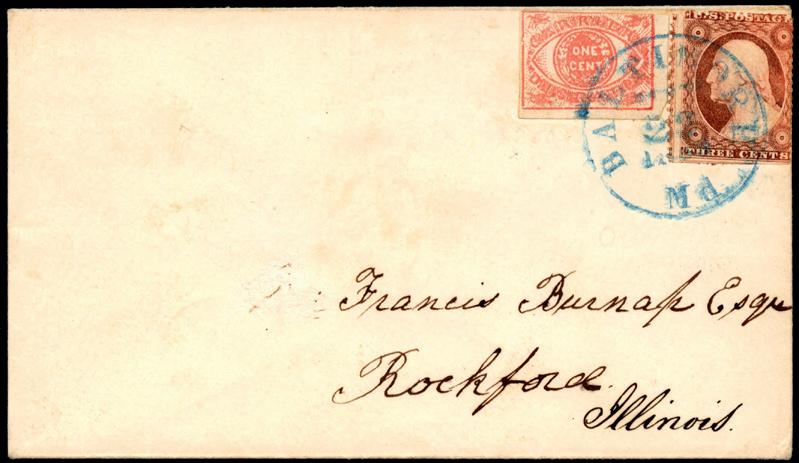 ONE
CENT
U.S. POSTAGE
THREE CENTS
BALTIMORE
Md.
Francis Burnap Esqr
Rockford
Illinois.